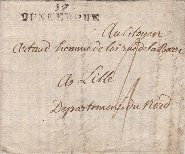 57
DUNKERQUE
Au Citoyen
homme de loi rue de la Barre
A Lille
Département du Nord